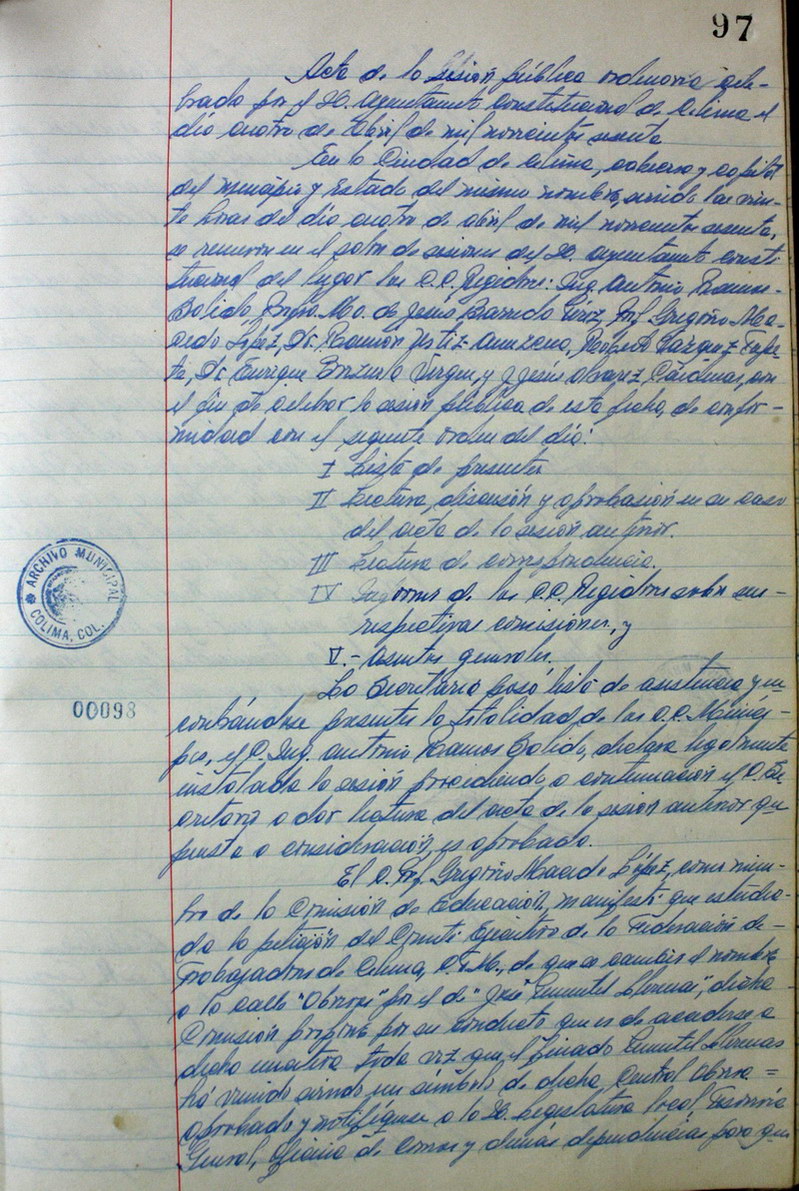 97
Acta de la sesión pública ordinaria cele-
brada por el H. Ayuntamiento Constitucional de Colima el
día cuatro de Abril de mil novecientos sesenta
En la Ciudad de Colima, cabecera y capital
del municipio y Estado del mismo nombre, siendo las vein-
te horas del día cuatro de abril de mil novecientos sesenta,
se reunieron en el salón de sesiones del H. Ayuntamiento Consti-
tucional del lugar los C.C. Regidores: Ing. Antonio Ramos
Salido, Profra. Ma. de Jesús Barreda Pérez, Prof. Gregorio Ma-
cedo López, Dr. Ramón Ortiz Amezcua, Roberto Vázquez
Dr. Enrique Brizuela Virgen, y Jesús Alvarez Cárdenas, con
el fin de celebrar la sesión pública de esta fecha, de confor-
midad con el siguiente orden del día:
I Lista de presentes
II Lectura, discusión y aprobación en su caso
del acta de la sesión anterior.
III Lectura de correspondencia.
IV Informes de los C.C. Regidores sobre sus
respectivas comisiones, y
V.- Asuntos generales.
ARCHIVO MUNICIPAL
COLIMA, COL.
La Secretaría pasó lista de asistencia y en-
00098
contrándose presentes la totalidad de los C.C. Munici-
pes, el C. Ing. Antonio Ramos Salido, declara legalmente
instalada la sesión procediendo a continuación el C. Se-
cretario a dar lectura del acta de la sesión anterior que
puesta a consideración, es aprobada.
El C. Prof. Gregorio Macedo López, como miem-
bro de la Comisión de Educación, manifestó que estudia-
da la petición del Comité Ejecutivo de la Federación de
Trabajadores de Colima, C.T.M., de que se cambie el nombre
a la calle "Obregón" por el de "José Gumuntel Llerenas", dicha
Comisión propone por su conducto que es de accederse a
dicha iniciativa toda vez que el finado Llerenas
ha venido siendo un símbolo de dicha Central Obrera. =
Aprobado y notifíquese a la H. Legislatura local Tesorería
General, Oficina de Correos y demás dependencias para que